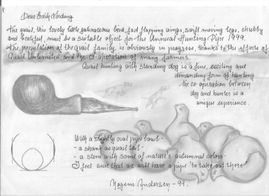 Dear Emily Nording
The quail, this lovely little gallinaceous bird, fast flapping wings, swift moving legs, chubby
and tasteful, must be a suitable object for the Universal Hunting Pipe 1999.
The population of the quail family is obviously in progress, thanks to the efforts of
Quail Unlimited and the cooperation of many farmers.
Quail hunting with standing dog is a fine, exciting and
demanding form of hunting.
The co operation between
dog and hunter is a
unique experience.
With a slightly oval pipe bowl
- a shank as quail tail
- a stem with some of nature's autumnal colors
I feel sure that we will have a pipe to catch the spirit
Mogens Andersen - 99.